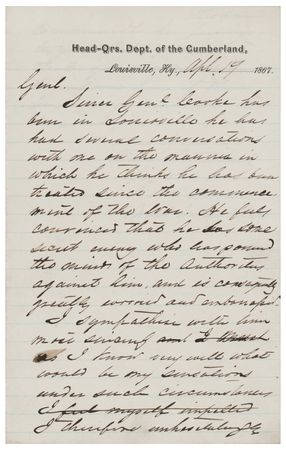 Head-Qrs. Dept. of the Cumberland,
Louisville, Ky., Apl. 19 1867.
Genl.
Since Genl. Cooke has
been in Louisville he has
had several conversations
with me on the manner in
which he thinks he has been
treated since the commence
ment of the War. He feels
convinced that he has some
secret enemy who has poisoned
the minds of the Authorities
against him, and is consequently
greatly worried and unhappy.
I sympathise with him
most sincerely and I
as I know very well what
would be my sensations
under such circumstances
I feel myself impelled
I therefore unhesitatingly